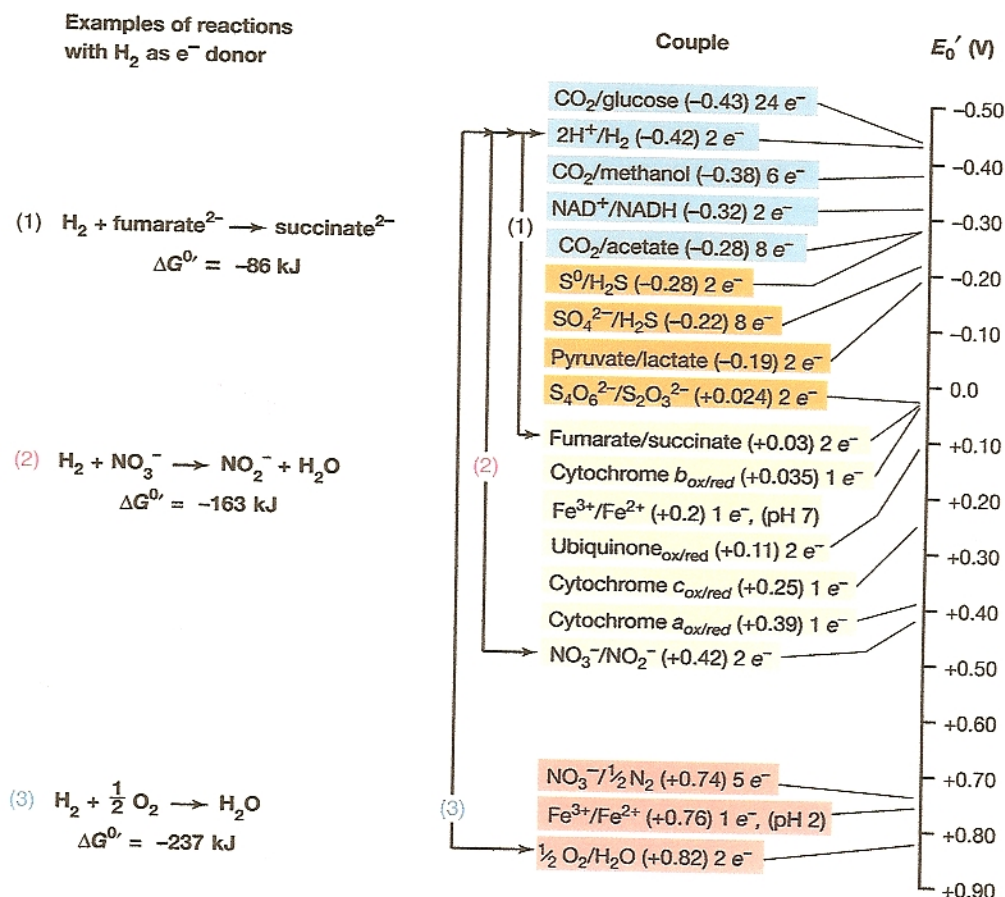 Examples of reactions
with H₂ as e⁻ donor
(1) H₂ + fumarate²⁻ → succinate²⁻
ΔG⁰′ = −86 kJ
(2) H₂ + NO₃⁻ → NO₂⁻ + H₂O
ΔG⁰′ = −163 kJ
(3) H₂ + 1/2 O₂ → H₂O
ΔG⁰′ = −237 kJ
(1)
(2)
(3)
Couple
CO₂/glucose (−0.43) 24 e⁻
2H⁺/H₂ (−0.42) 2 e⁻
CO₂/methanol (−0.38) 6 e⁻
NAD⁺/NADH (−0.32) 2 e⁻
CO₂/acetate (−0.28) 8 e⁻
S⁰/H₂S (−0.28) 2 e⁻
SO₄²⁻/H₂S (−0.22) 8 e⁻
Pyruvate/lactate (−0.19) 2 e⁻
S₄O₆²⁻/S₂O₃²⁻ (+0.024) 2 e⁻
Fumarate/succinate (+0.03) 2 e⁻
Cytochrome b ox/red (+0.035) 1 e⁻
Fe³⁺/Fe²⁺ (+0.2) 1 e⁻, (pH 7)
Ubiquinone ox/red (+0.11) 2 e⁻
Cytochrome c ox/red (+0.25) 1 e⁻
Cytochrome a ox/red (+0.39) 1 e⁻
NO₃⁻/NO₂⁻ (+0.42) 2 e⁻
NO₃⁻/½ N₂ (+0.74) 5 e⁻
Fe³⁺/Fe²⁺ (+0.76) 1 e⁻, (pH 2)
½ O₂/H₂O (+0.82) 2 e⁻
E₀′ (V)
−0.50
−0.40
−0.30
−0.20
−0.10
0.0
+0.10
+0.20
+0.30
+0.40
+0.50
+0.60
+0.70
+0.80
+0.90